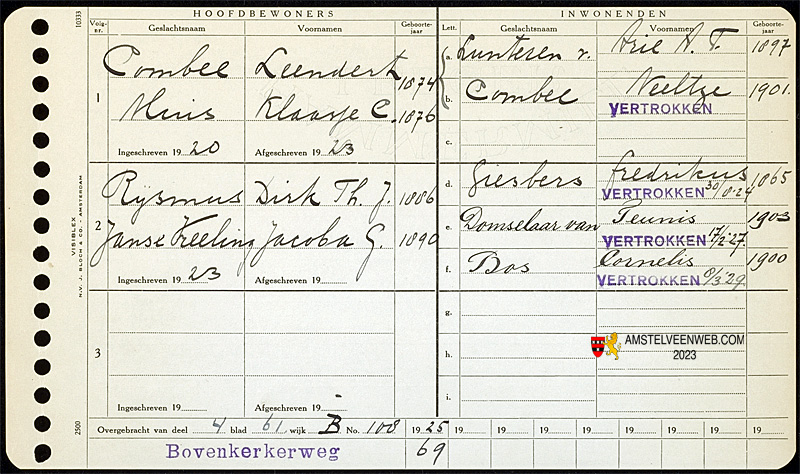 HOOFDBEWONERS
INWONENDEN
Volg-nr.
Geslachtsnaam
Voornamen
Geboorte-jaar
Lett.
Geslachtsnaam
Voornamen
Geboorte-jaar
1
Combee Leendert 1874
Muis Klaasje C. 1876
Ingeschreven 1920 Afgeschreven 1923
a. Lunteren v. Arie A. T. 1897
b. Combee Neeltje 1901.
VERTROKKEN
c.
2
Rijsmus Dirk Th. J. 1886
Janse Kreeling Jacoba G. 1890
Ingeschreven 1923 Afgeschreven 19
d. Giesbers Fredrikus 1865
VERTROKKEN 30/8-24
e. Domselaar van Teunis 1903
VERTROKKEN 17/2-27.
f. Bos Cornelis 1900
VERTROKKEN 8/3'29
3
Ingeschreven 19 Afgeschreven 19
g.
h.
i.
AMSTELVEENWEB.COM
2023
Overgebracht van deel 4 blad 61 wijk B No. 108 1925 19 19 19 19 19 19 19 19
Bovenkerkerweg 69
10333
VISIBLEX
N.V. J. BLOCH & CO. - AMSTERDAM
2500